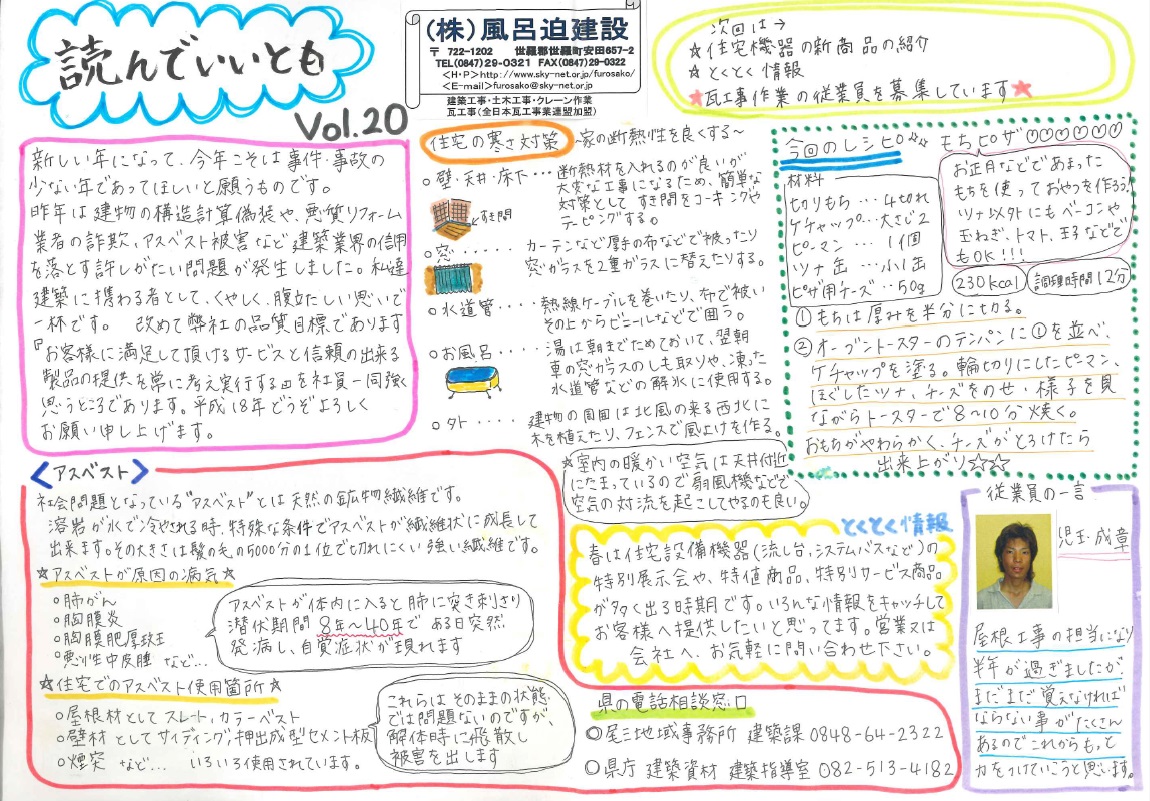 読んでいいとも
Vol.20
(株)風呂迫建設
〒 722-1202 世羅郡世羅町安田657-2
TEL(0847)29-0321 FAX(0847)29-0322
<H・P>http://www.sky-net.or.jp/furosako/
<E-mail>furosako@sky-net.or.jp
建築工事・土木工事・クレーン作業
瓦工事(全日本瓦工事業連盟加盟)
次回は→
☆住宅機器の新商品の紹介
☆とくとく情報
★瓦工事作業の従業員を募集しています★
新しい年になって、今年こそは事件・事故の
少ない年であってほしいと願うものです。
昨年は建物の構造計算偽装や、悪質リフォーム
業者の詐欺、アスベスト被害など建築業界の信用
を落とす許しがたい問題が発生しました。私達
建築に携わる者として、くやしく、腹立たしい思いで
一杯です。 改めて弊社の品質目標であります
『お客様に満足して頂けるサービスと信頼の出来る
製品の提供を常に考え実行する』を社員一同強く
思うところであります。平成18年どうぞよろしく
お願い申し上げます。
住宅の寒さ対策 ~家の断熱性を良くする~
○壁・天井・床下・・・断熱材を入れるのが良いが、
大変な工事になるため、簡単な
対策として すき間をコーキングや
テーピングする。
すき間
○窓・・・・・カーテンなど厚手の布などで被ったり
窓ガラスを2重ガラスに替えたりする。
○水道管・・・・熱線ケーブルを巻いたり、布で被い
その上からビニールなどで囲う。
○お風呂・・・・・湯は朝までためておいて、翌朝
車の窓ガラスのしも取りや、凍った
水道管などの解氷に使用する。
○外・・・・建物の周囲は北風の来る西北に
木を植えたり、フェンスで風よけを作る。
☆室内の暖かい空気は天井付近
にたまっているので扇風機などで
空気の対流を起こしてやるのも良い。
今回のレシピ☆☆ もちピザ♡♡♡♡♡♡
材料
切りもち・・・4切れ
ケチャップ・・大さじ2
ピーマン・・・1個
ツナ缶・・・小1缶
ピザ用チーズ・・50g
お正月などであまった
もちを使っておやつを作ろう!
ツナ以外にもベーコンや
玉ねぎ、トマト、玉子などで
もOK!!!
230kcal 調理時間12分
①もちは厚みを半分に切る。
②オーブントースターのテンパンに①を並べ、
ケチャップを塗る。輪切りにしたピーマン、
ほぐしたツナ、チーズをのせ、様子を見
ながらトースターで8~10分焼く。
おもちがやわらかく、チーズがとろけたら
出来上がり☆☆☆
<アスベスト>
社会問題となっている"アスベスト"とは天然の鉱物繊維です。
溶岩が水で冷やされる時、特殊な条件でアスベストが繊維状に成長して
出来ます。その大きさは髪の毛の5000分の1位で切れにくい強い繊維です。
☆アスベストが原因の病気☆
○肺がん
○胸膜炎
○胸膜肥厚斑
○悪性中皮腫 など…
アスベストが体内に入ると肺に突き刺さり
潜伏期間8年~40年である日突然
発病し、自覚症状が現れます
☆住宅でのアスベスト使用箇所☆
○屋根材としてスレート、カラーベスト
○壁材としてサイディング、押出成型セメント板
○煙突 など… いろいろ使用されています。
これらはそのままの状態
では問題ないのですが、
解体時に飛散し
被害を出します
とくとく情報
春は住宅設備機器(流し台、システムバスなど)の
特別展示会や、特値商品、特別サービス商品
が多く出る時期です。いろんな情報をキャッチして
お客様へ提供したいと思ってます。営業又は
会社へ、お気軽に問い合わせ下さい。
県の電話相談窓口
○尾三地域事務所 建築課 0848-64-2322
○県庁 建築資材 建築指導室 082-513-4182
従業員の一言
児玉成章
屋根工事の担当になり
半年が過ぎましたが、
まだまだ覚えなければ
ならない事がたくさん
あるのでこれからもっと
力をつけていこうと思います。